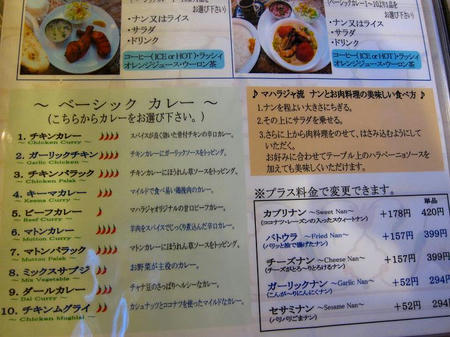 お選び下さい)
・ナン又はライス
・サラダ
・ドリンク
コーヒー(ICE or HOT)・ラッシィ
オレンジジュース・ウーロン茶
お選び下さい)
・ナン又はライス
・サラダ
・ドリンク
コーヒー(ICE or HOT)・ラッシィ
オレンジジュース・ウーロン茶
~ ベーシック カレー ~
(こちらからカレーをお選び下さい。)
1. チキンカレー
~ Chicken Curry ~
スパイスが良く効いた骨付チキンの辛口カレー。
2. ガーリックチキン
~ Garlic Chicken ~
チキンカレーにガーリックソースをトッピング。
3. チキンパラック
~ Chicken Palak ~
チキンカレーにほうれん草ソースをトッピング。
4. キーマカレー
~ Keema Curry ~
マイルドで食べ易い鶏挽肉のカレー。
5. ビーフカレー
~ Beef Curry ~
マハラジャオリジナルの甘口ビーフカレー。
6. マトンカレー
~ Mutton Curry ~
羊肉をスパイスでじっくり煮込んだ辛口カレー。
7. マトンパラック
~ Mutton Palak ~
マトンカレーにほうれん草ソースをトッピング。
8. ミックスサブジ
~ Mix Vegetable ~
お野菜が主役のカレー。
9. ダールカレー
~ Dal Curry ~
チャナ豆のさっぱりヘルシーなカレー。
10. チキンムグライ
~ Chicken Mughlai
カシュナッツとココナツを使ったマイルドなカレー。
♪ マハラジャ流 ナンとお肉料理の美味しい食べ方 ♪
1.ナンを程よい大きさにちぎる。
2.その上にサラダを乗せる。
3.さらに上から肉料理をのせて、はさみ込むようにして
いただく。
お好みに合わせてテーブル上のハラペーニョソースを
加えても美味しくいただけます。
※プラス料金で変更できます。
単品
カブリナン ~Sweet Nan~ +178円 420円
(ココナツ・レーズンの入ったスウィートナン)
バトウラ ~Fried Nan~ +157円 399円
(パリッと油で揚げたナン)
チーズナン ~Cheese Nan~ +157円 399円
(チーズがとろ~りとろけるナン)
ガーリックナン ~Garlic Nan~ +52円 294
(こんが~りにんにくナン)
セサミナン ~Sesame Nan~ +52円 294
(パリパリごまナン)